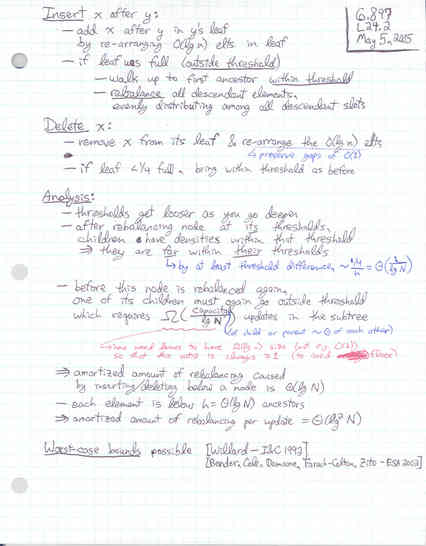 Insert x after y:
6.897
L24.2
May 5, 2005
— add x after y in y's leaf
by re-arranging O(lg n) elts in leaf
— if leaf was full (outside threshold)
— walk up to first ancestor within threshold
— rebalance all descendant elements,
evenly distributing among all descendant slots
Delete x:
— remove x from its leaf & re-arrange the O(lg n) elts
↳ preserve gaps of O(1)
— if leaf < 1/4 full, bring within threshold as before
Analysis:
— thresholds get looser as you go deeper
— after rebalancing node at its thresholds,
children have densities within that threshold
⇒ they are far within their thresholds
↳ by at least threshold difference, ~ 1/4/h = Θ(1/lg N)
— before this node is rebalanced again,
one of its children must again go outside threshold
which requires Ω(capacity/lg N) updates in the subtree
(of child or parent ~ Θ of each other)
need leaves to have size (not e.g. O(1))
so that this ratio is always ≥ 1 (to avoid floor)
⇒ amortized amount of rebalancing caused
by inserting/deleting below a node is Θ(lg N)
— each element is below h = Θ(lg N) ancestors
⇒ amortized amount of rebalancing per update = Θ(lg² N)
Worst-case bounds possible [Willard — I&C 1992]
[Bender, Cole, Demaine, Farach-Colton, Zito — ESA 2002]